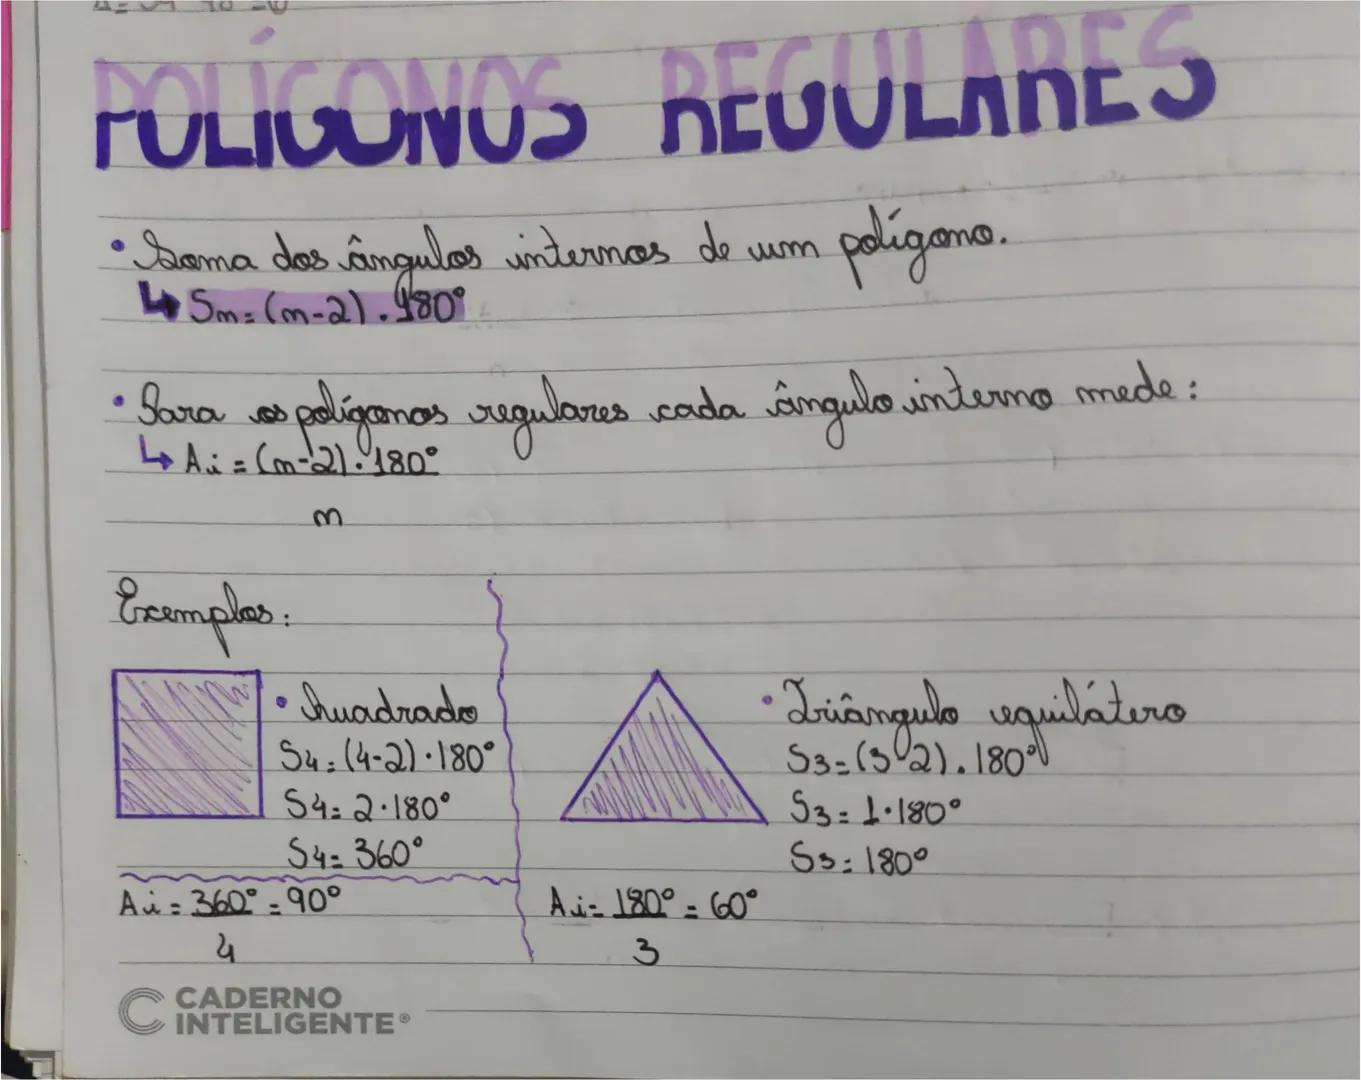 POLÍGONOS REGULARES
• Soma dos ângulos internos de um polígono.
↳ Sn = (n-2) . 180°
• Para os polígonos regulares cada ângulo interno mede:
↳ Ai = (n-2) . 180°
n
Exemplos:
• Quadrado
S4 = (4-2) · 180°
S4 = 2 · 180°
S4 = 360°
Ai = 360° = 90°
4
• Triângulo equilátero
S3 = (3-2) . 180°
S3 = 1 · 180°
S3 = 180°
Ai = 180° = 60°
3
CADERNO
INTELIGENTE®